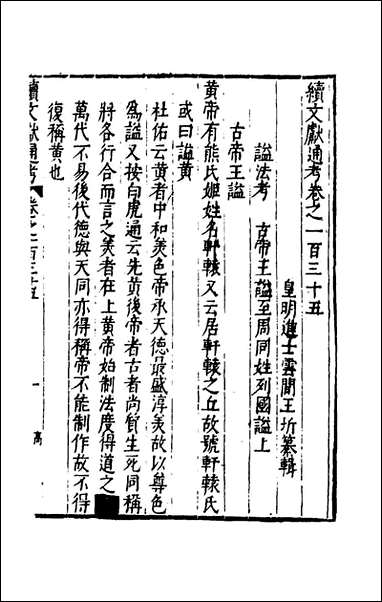 續文獻通考卷之一百三十五
皇明進士雲間王圻纂輯
謚法考 古帝王謚至周同姓列國謚上
古帝王謚
黄帝有熊氏姬姓名軒轅又云居軒轅之丘故號軒轅氏
或曰謚黄
杜佑云黄者中和美色帝承天德最盛淳美故以尊色
為謚又按白虎通云先黄後帝者古者尚質生死同稱
將各行合而言之美者在上黄帝始制法度得道之
萬代不易後代德與天同亦得稱帝不能制作故不得
復稱黄也
續文獻通考 卷之一百三十五 一 高